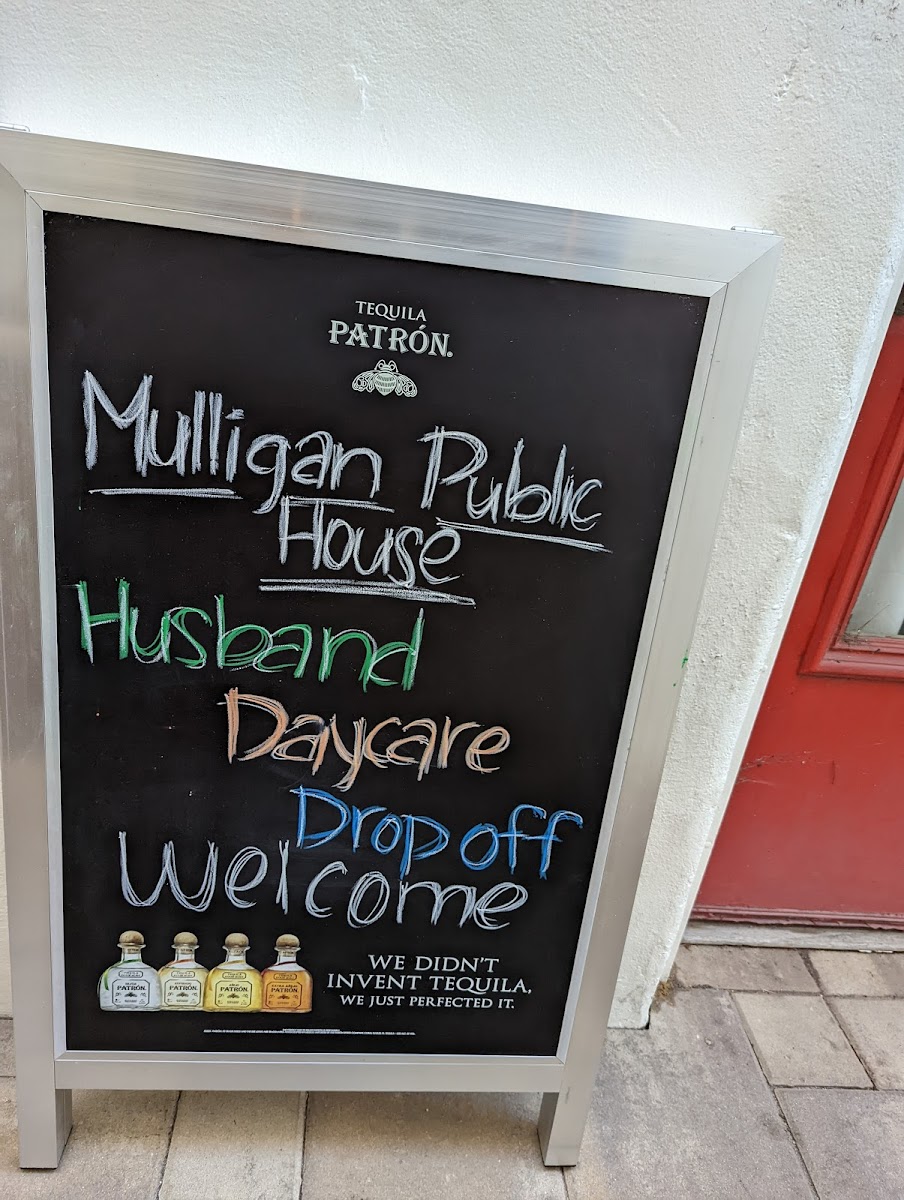 TEQUILA
PATRÓN.
Mulligan Public
House
Husband
Daycare
Drop off
Welcome
WE DIDN'T
INVENT TEQUILA,
WE JUST PERFECTED IT.
PATRÓN
PATRÓN
PATRÓN
PATRÓN